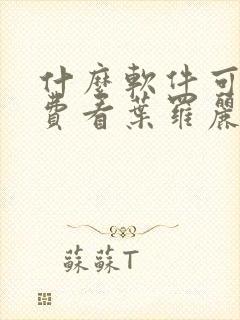 什麼軟件可
費看葉羅麗
蘇蘇T